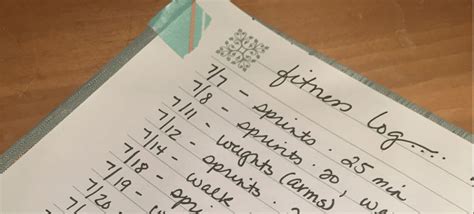 fitness log....
7/7 - sprints . 25 min
7/8 - sprints . 20, we
7/11 - weights (arms)
7/12 - sprints . 2
7/14 - walk
7/18 - spri
7/19 -
7/20 -